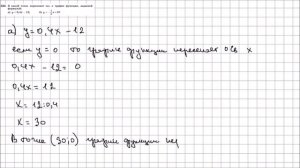 а) y = 0,4x - 12
если y = 0 то график функции пересекает ось x
0,4x - 12 = 0
0,4x = 12
x = 12:0,4
x = 30
В точке (30,0) график функции пер